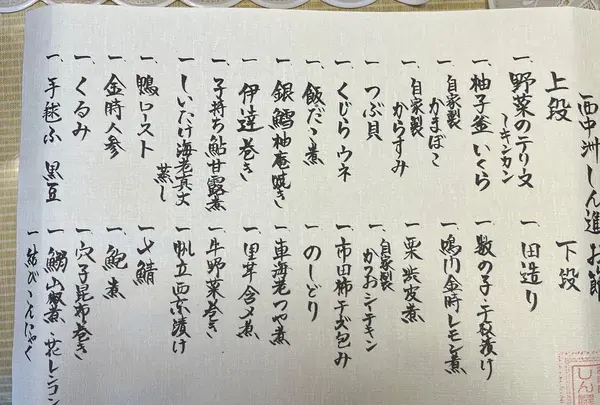 西中洲しん進 お節
上段
一、野菜のテリーヌ
ーキンカン
一、柚子釜いくら
一、自家製
かまぼこ
一、自家製
からすみ
一、つぶ貝
一、くじらウネ
一、飯だこ煮
一、銀鱈柚庵焼き
一、伊達巻き
一、子持ち鮎甘露煮
一、しいたけ海老真丈
蒸し
一、鴨ロースト
一、金時人参
一、くるみ
一、手毬ふ 黒豆
下段
一、田造り
一、数の子
一、鳴川金時レモン煮
一、栗渋皮煮
一、自家製
かつお
一、市田柿
包み
一、のしどり
一、車海老つや煮
一、里芋含メ煮
一、牛野菜巻き
一、帆立西京漬け
一、〆鯖
一、鮑煮
一、穴子昆布巻き
一、鰯山椒煮・花レンコン
一、結びこんにゃく